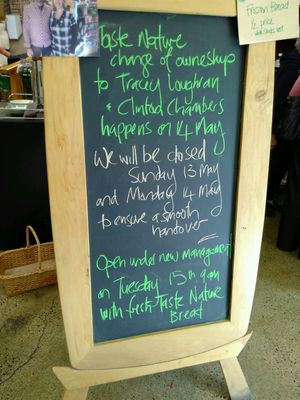 Taste Nature
change of owneship
to Tracey Loughran
& Clinton Chambers
happens on 14 May.
We will be closed
Sunday 13 May
and Monday 14 May
to ensure a smooth
handover
Open under new management
on Tuesday 15th, 9am
with fresh Taste Nature
Bread
Frozen Bread
½ price